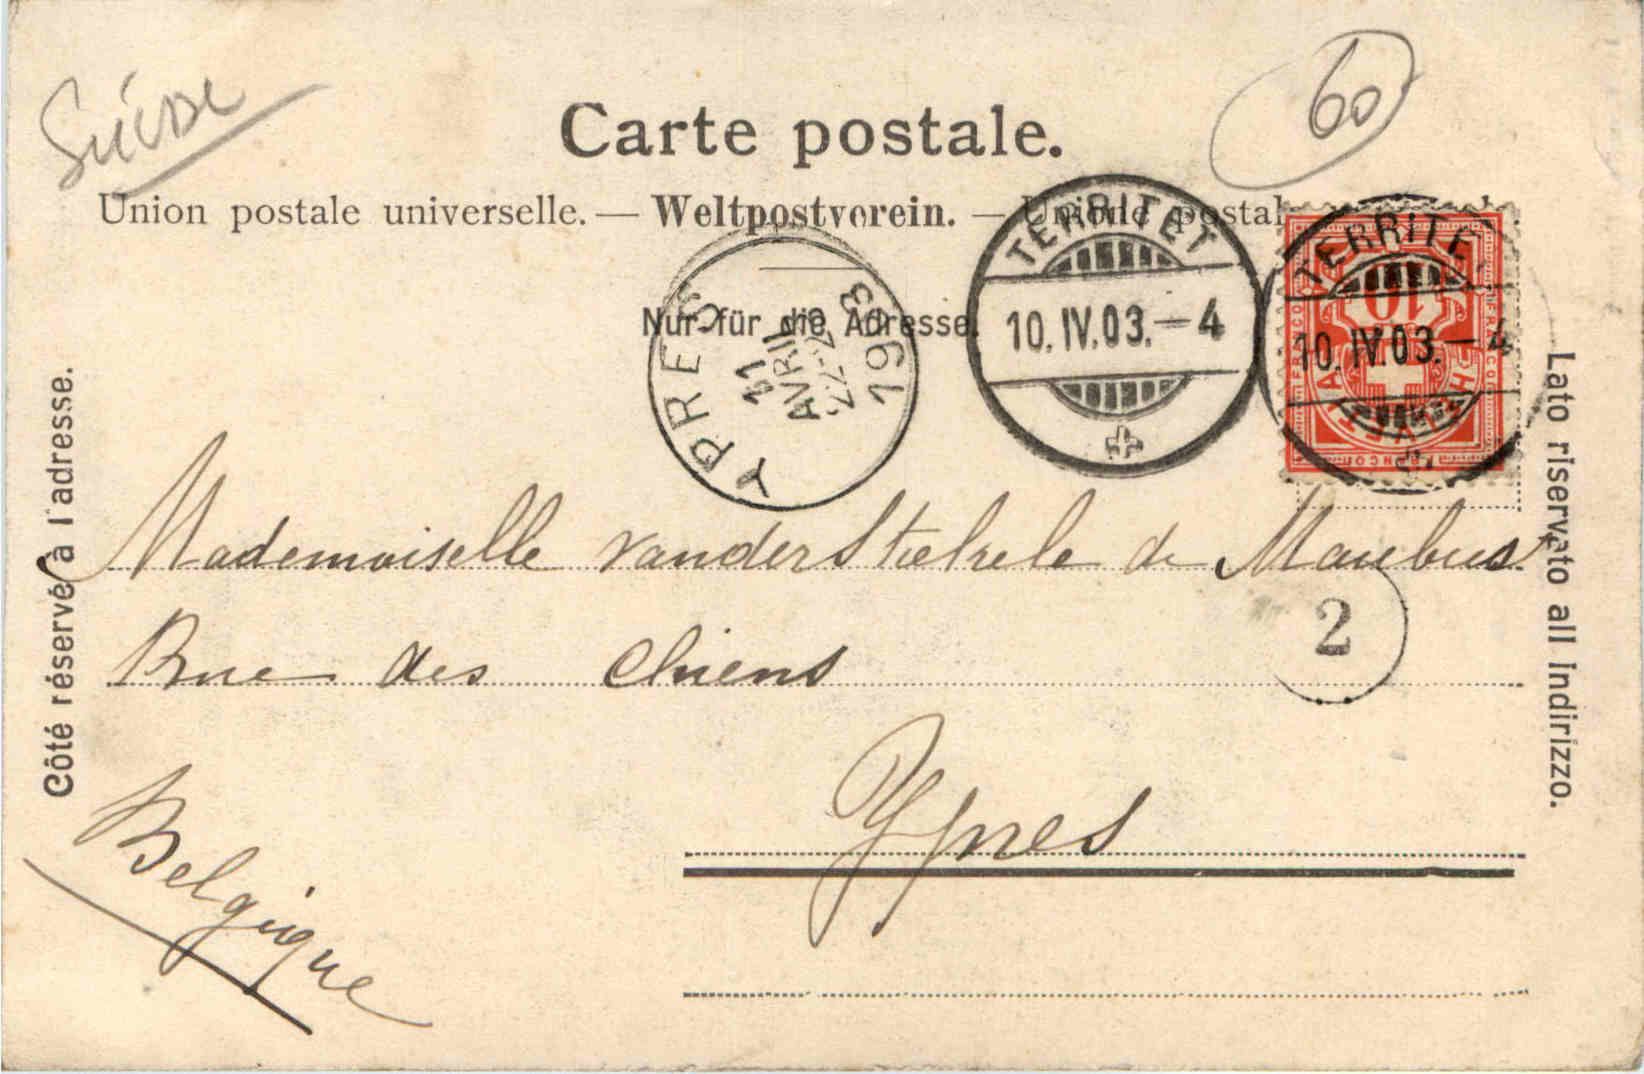 Suisse
60
Carte postale.
Union postale universelle. — Weltpostverein. — Unione postal
Nur für die Adresse.
TERRITET
10.IV.03.–4
TERRITE
10.IV.03.–4
10
FRANCO
HELVETIA
YPRES
11
AVRIL
22-23
1903
Côté réservé à l'adresse.
Lato riservato all indirizzo.
Mademoiselle vanderStichele de Maubus
2
Rue des Chiens
Ypres
Belgique